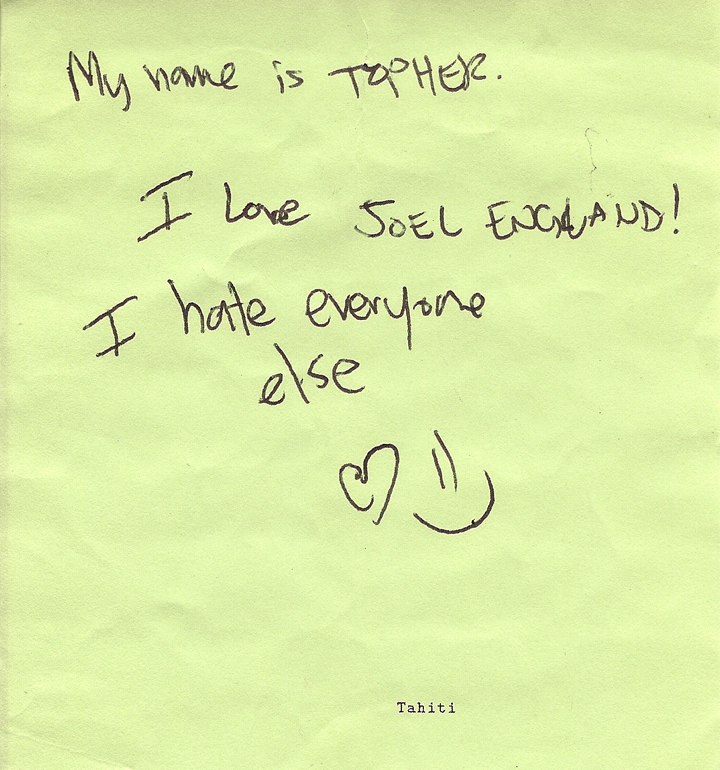 My name is TOPHER.
I Love JOEL ENGLAND!
I hate everyone
else
Tahiti